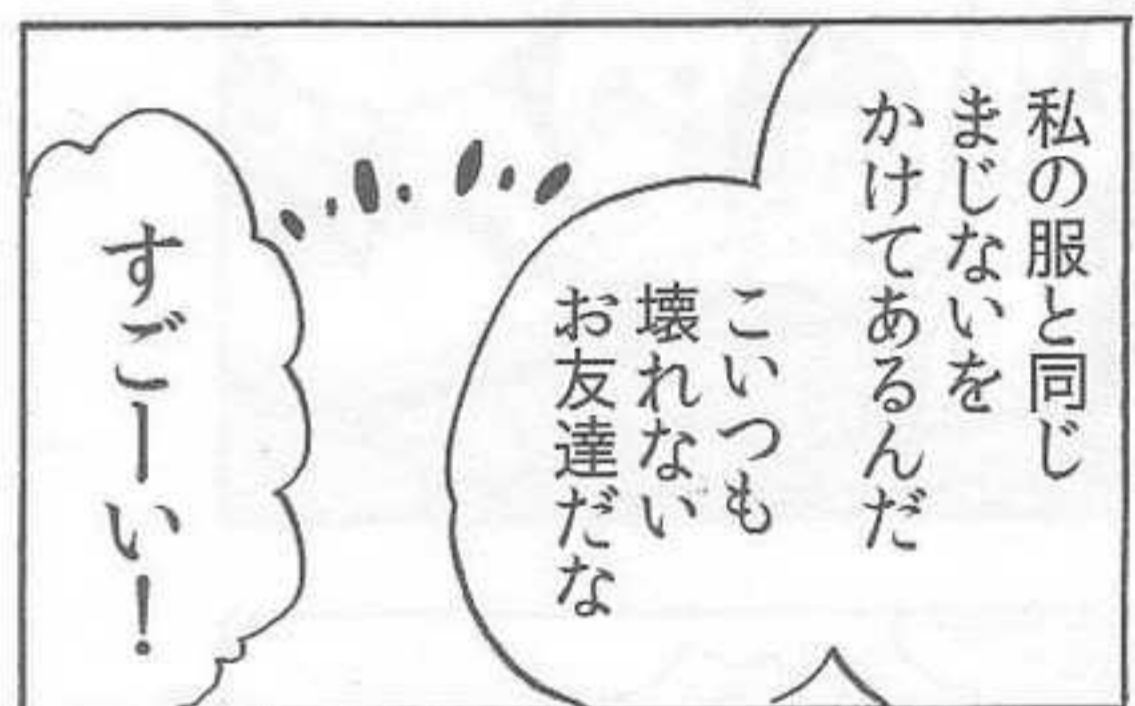 私の服と同じ
まじないを
かけてあるんだ
こいつも
壊れない
お友達だな
すごーい！